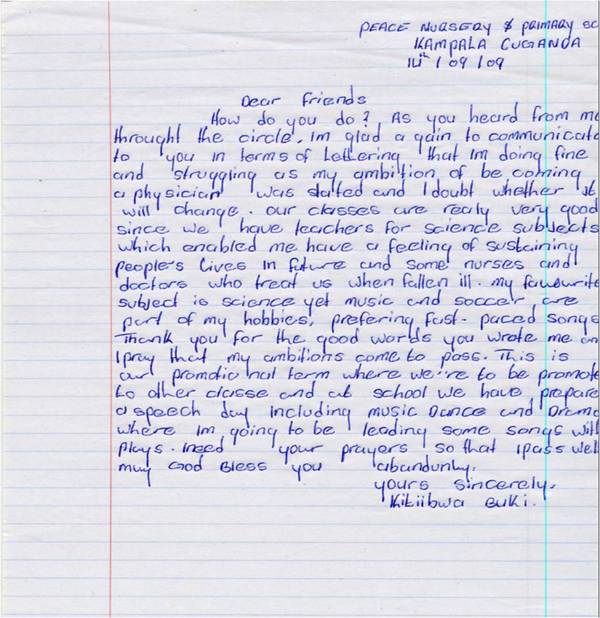 PEACE NURSERY & PRIMARY SC
KAMPALA CUGANDA
14th / 09 / 09
Dear Friends
How do you do? As you heard from me
throught the circle, im glad a gain to communicate
to you in terms of lettering that Im doing fine
and struggling as my ambition of be coming
a physician was stated and I doubt whether it
will change. our classes are realy very good
since we have teachers for science subjects
which enabled me have a feeling of sustaining
people's lives in future and some nurses and
doctors who treat us when fallen ill. my favourite
subject is science yet music and soccer are
part of my hobbies, prefering fast-paced songs
Thank you for the good words you wrote me an
I pray that my ambitions come to pass. This is
our promotional term where we're to be promote
to other classe and at school we have prepare
a speech day including music Dance and Drama
where Im going to be leading some songs with
plays. ineed your prayers so that ipass well
may God Bless you abanduntly.
yours sincerely,
Kitiibwa Buki.